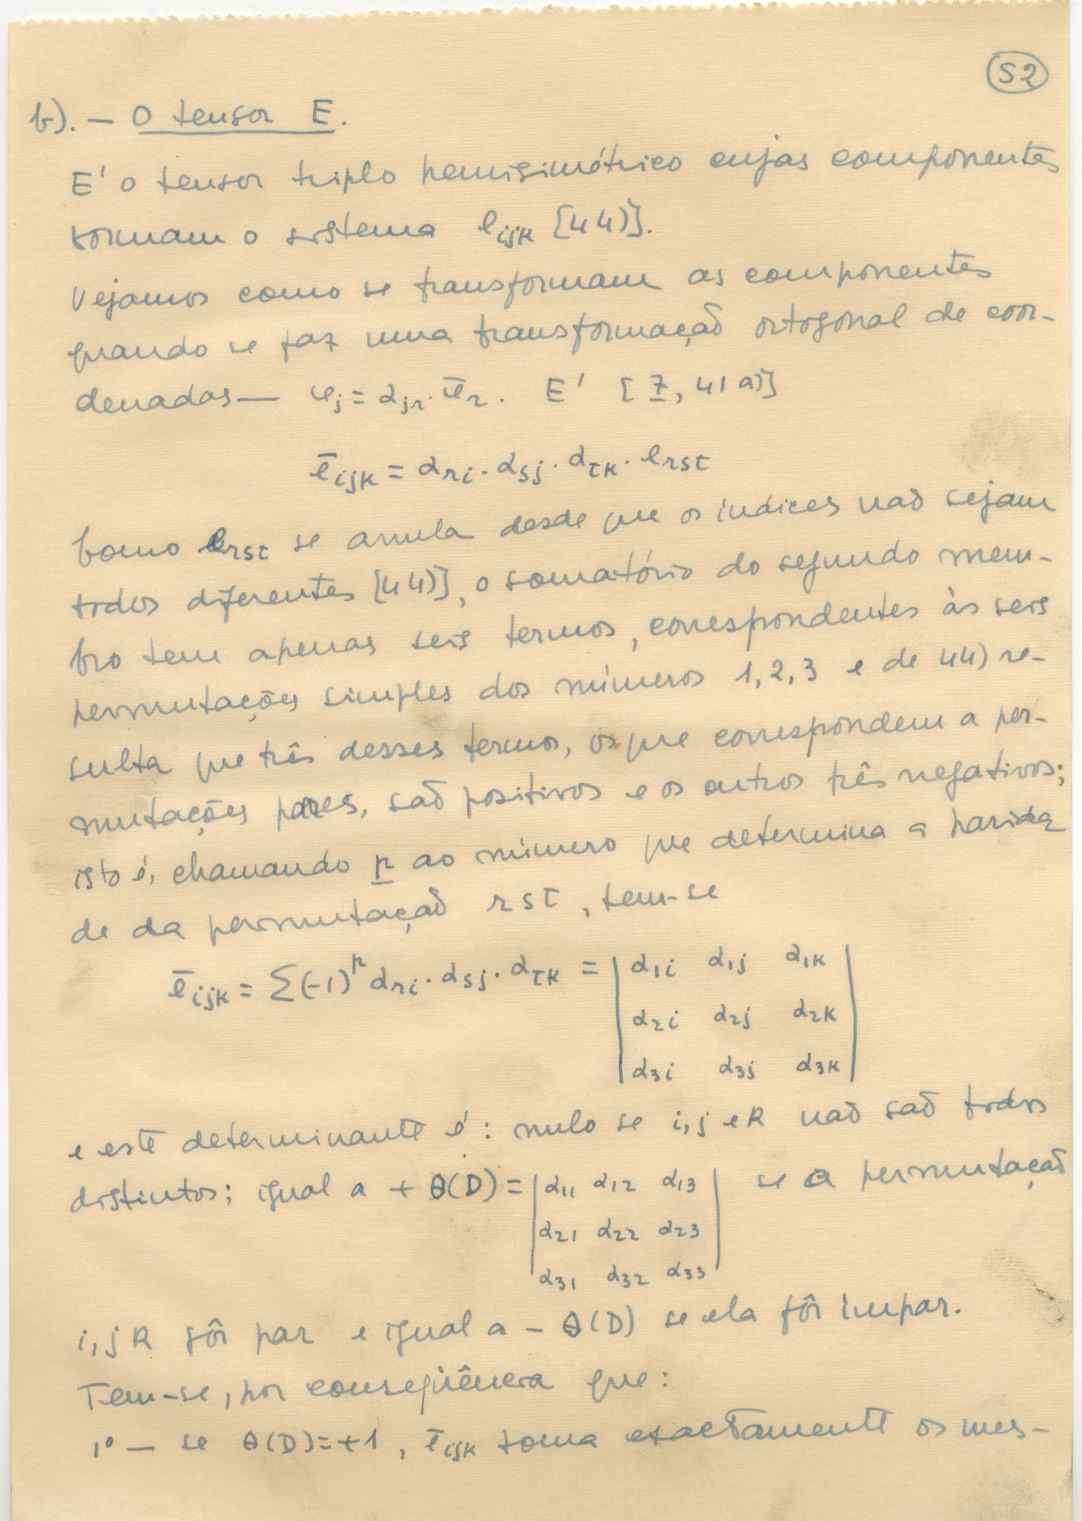 52
b). — O tensor E.
E' o tensor triplo hemisimétrico cujas componentes
formam o sistema e_ijk [44)].
Vejamos como se transformam as componentes
quando se faz uma transformação ortogonal de coor-
denadas — e_j = α_jr · ē_r. E' [7, 41 a)]
ē_ijk = α_ri · α_sj · α_tk · e_rst
Como e_rst se anula desde que os índices não sejam
todos diferentes [44)], o somatório do segundo mem-
bro tem apenas seis termos, correspondentes às seis
permutações simples dos números 1, 2, 3 e de 44) re-
sulta que três desses termos, os que correspondem a per-
mutações pares, são positivos e os outros três negativos;
isto é, chamando p ao número que determina a parida
de da permutação rst, tem-se
ē_ijk = Σ(-1)^p α_ri · α_sj · α_tk = | α_1i α_1j α_1k |
| α_2i α_2j α_2k |
| α_3i α_3j α_3k |
e este determinante é: nulo se i, j e k não são todos
distintos; igual a + θ(D) = | α_11 α_12 α_13 | se a permutação
| α_21 α_22 α_23 |
| α_31 α_32 α_33 |
i, j k fôr par e igual a - θ(D) se ela fôr impar.
Tem-se, por conseqüência que:
1º — se θ(D)=+1, ē_ijk toma exactamente os mes-